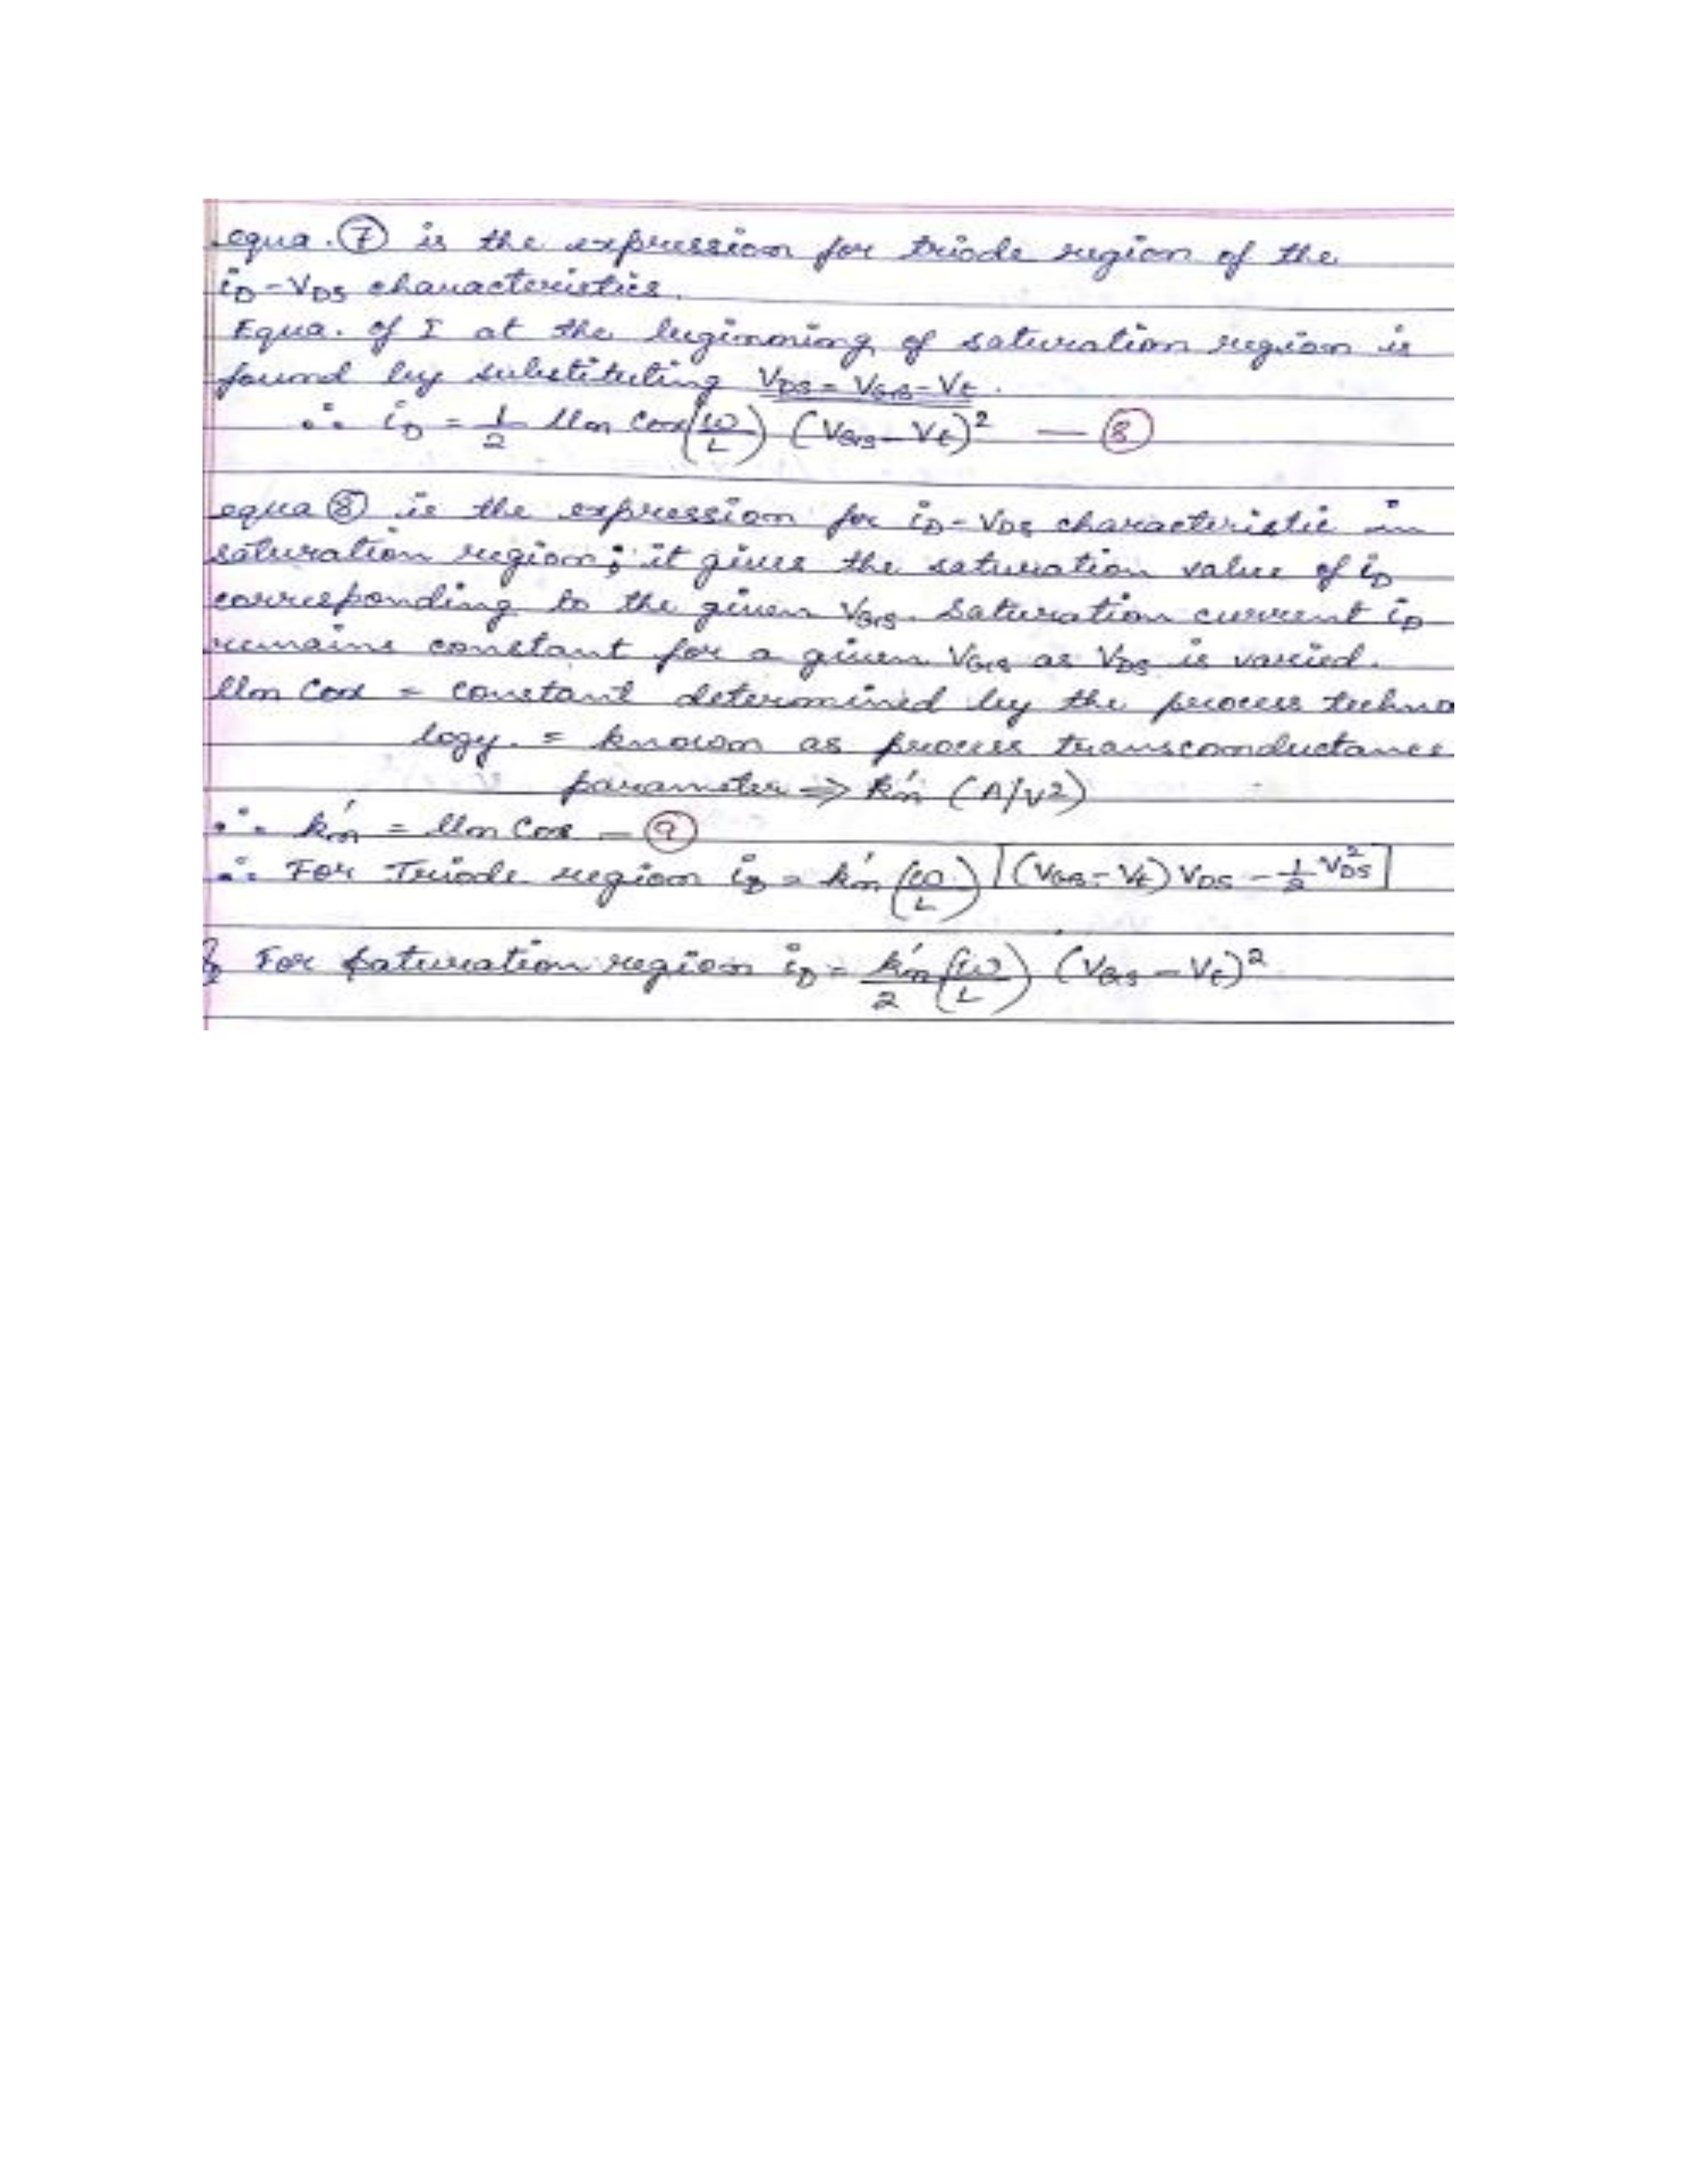 equa. ⑦ is the expression for triode region of the
iD-VDS characteristics.
Equa. of I at the beginning of saturation region is
found by substituting VDS = VGS - Vt.
∴ iD = 1/2 μn Cox (W/L) (VGS - Vt)² — ⑧
equa ⑧ is the expression for iD-VDS characteristic in
saturation region; it gives the saturation value of iD
corresponding to the given VGS. Saturation current iD
remains constant for a given VGS as VDS is varied.
μn Cox = constant determined by the process techno
logy. = known as process transconductance
parameter ⇒ k'n (A/V²)
∴ k'n = μn Cox — ⑨
∴ For Triode region iD = k'n (W/L) [(VGS - Vt) VDS - 1/2 VDS²]
& For saturation region iD = k'n/2 (W/L) (VGS - Vt)²